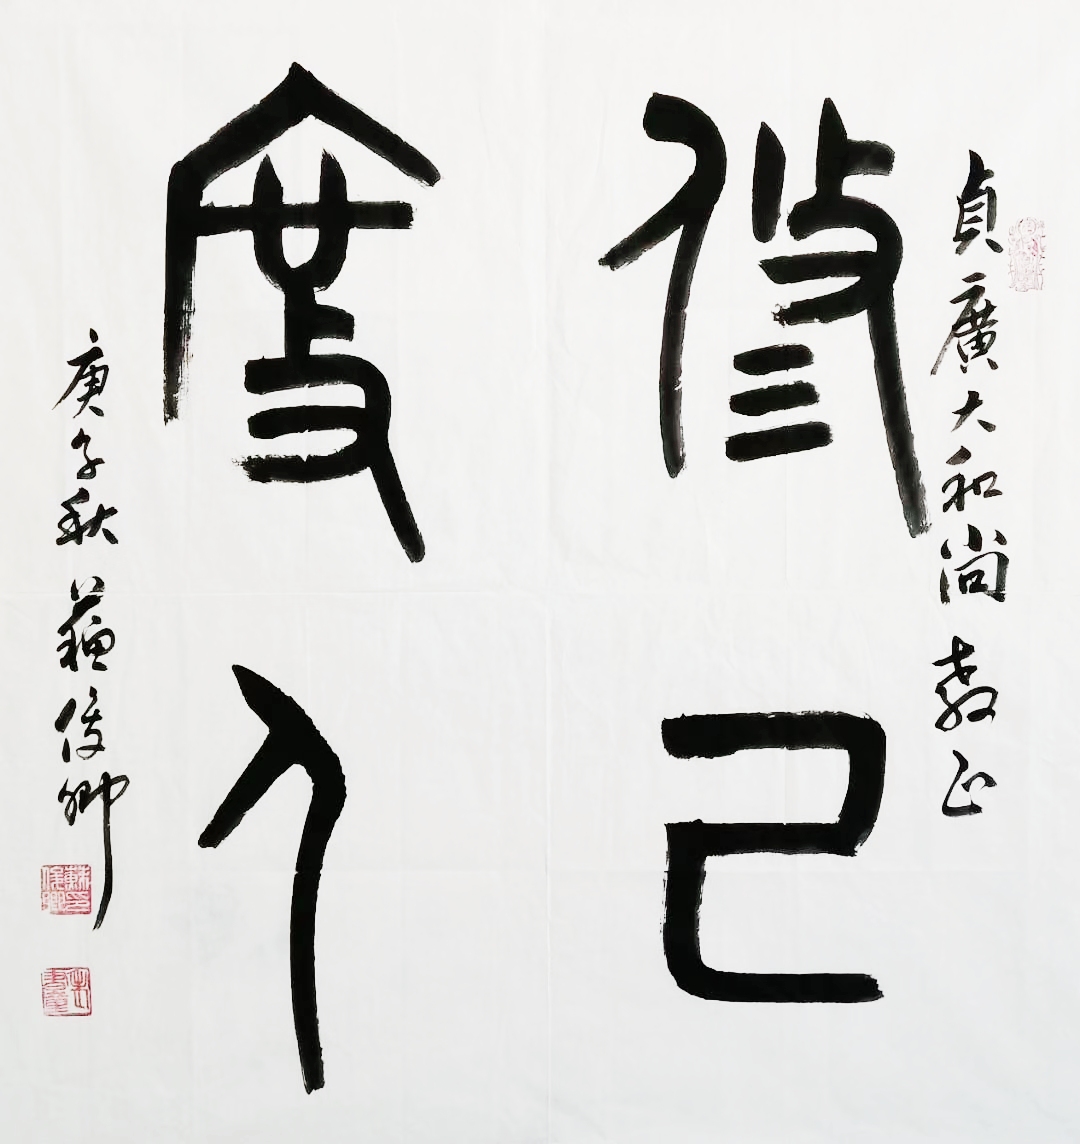 貞廣大和尚教正
修己
度人
庚子秋蘓俊卿